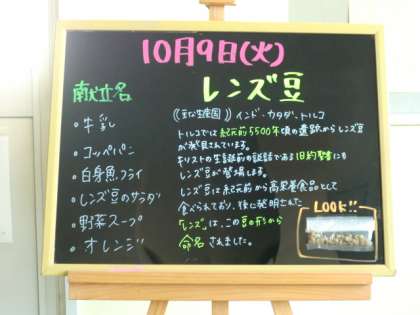 10月9日(火)
献立名
・牛乳
・コッペパン
・白身魚フライ
・レンズ豆のサラダ
・野菜スープ
・オレンジ
レンズ豆
《主な生産国》インド・カナダ・トルコ
トルコでは紀元前5500年頃の遺跡からレンズ豆
が発見されています。
キリストの生誕前の話である旧約聖書にも
レンズ豆が登場します。
レンズ豆は紀元前から高栄養食品として
食べられており、後に発明された
「レンズ」は、この豆の形から
命名されました。
LOOK!!